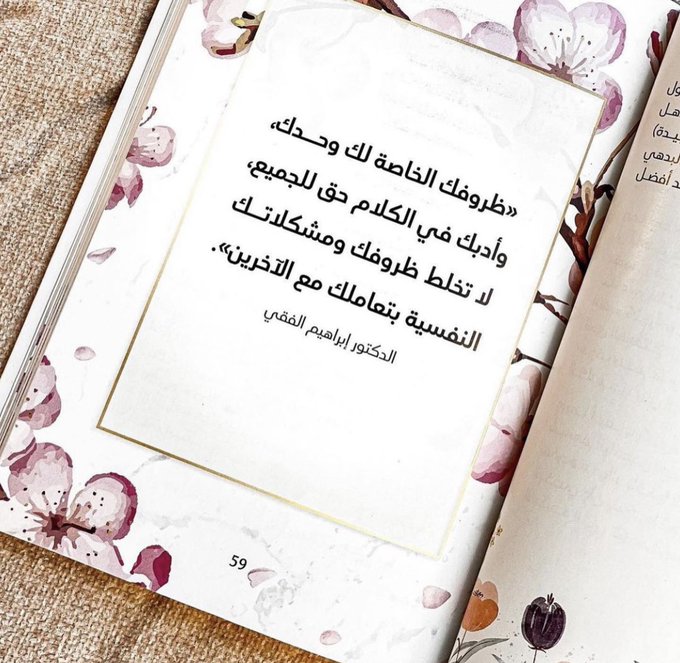 «ظروفك الخاصة لك وحدك،
وأدبك في الكلام حق للجميع،
لا تخلط ظروفك ومشكلاتك
النفسية بتعاملك مع الآخرين».
الدكتور إبراهيم الفقي
59